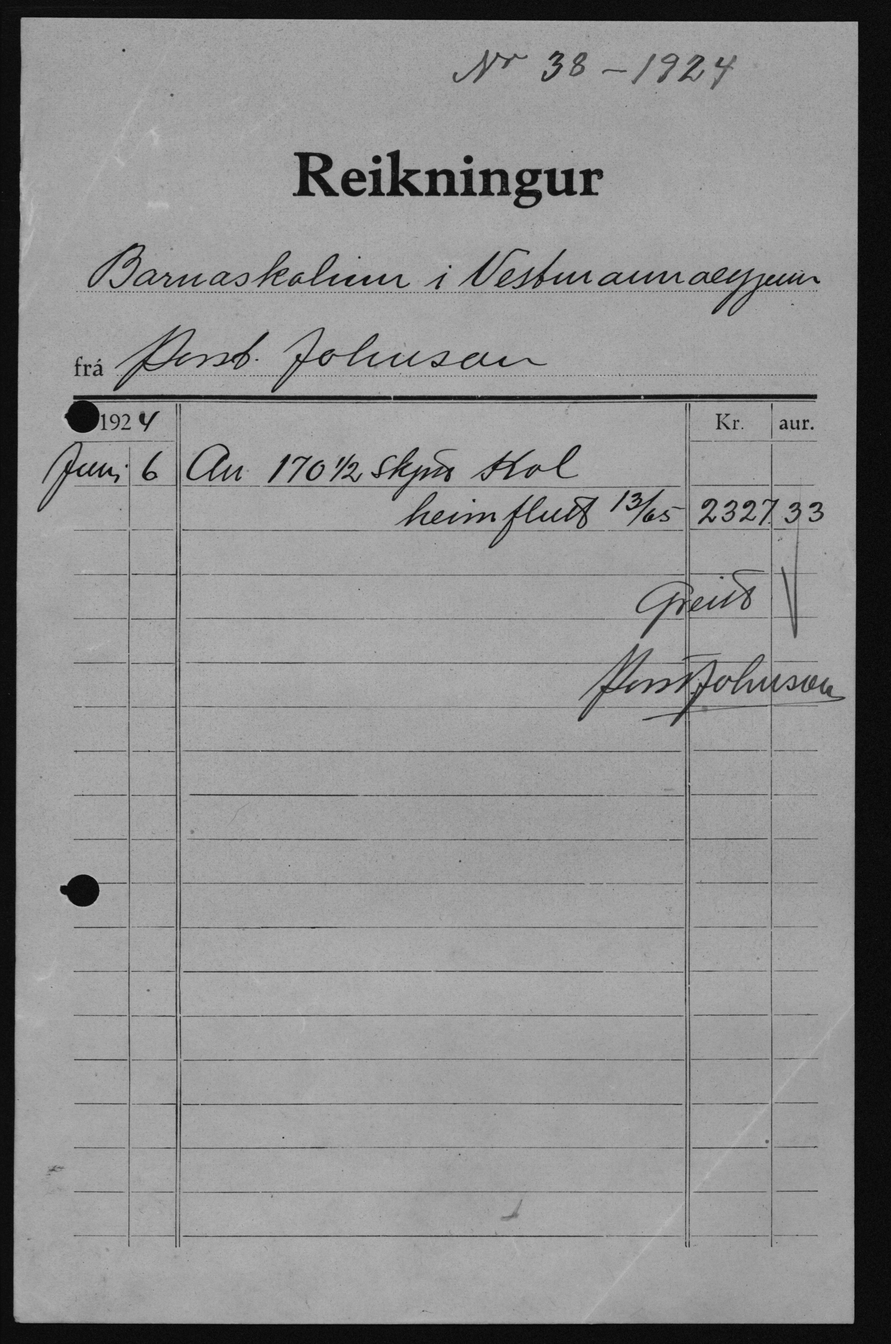 Nr 38 - 1924
Reikningur
Barnaskolinn i Vestmannaeyjum
frá Þorst. Johnson
1924 Kr. aur.
Juni 6 An 170 1/2 skpd Kol
heimflutt 13/65 2327 33
Greitt
Þorst Johnson